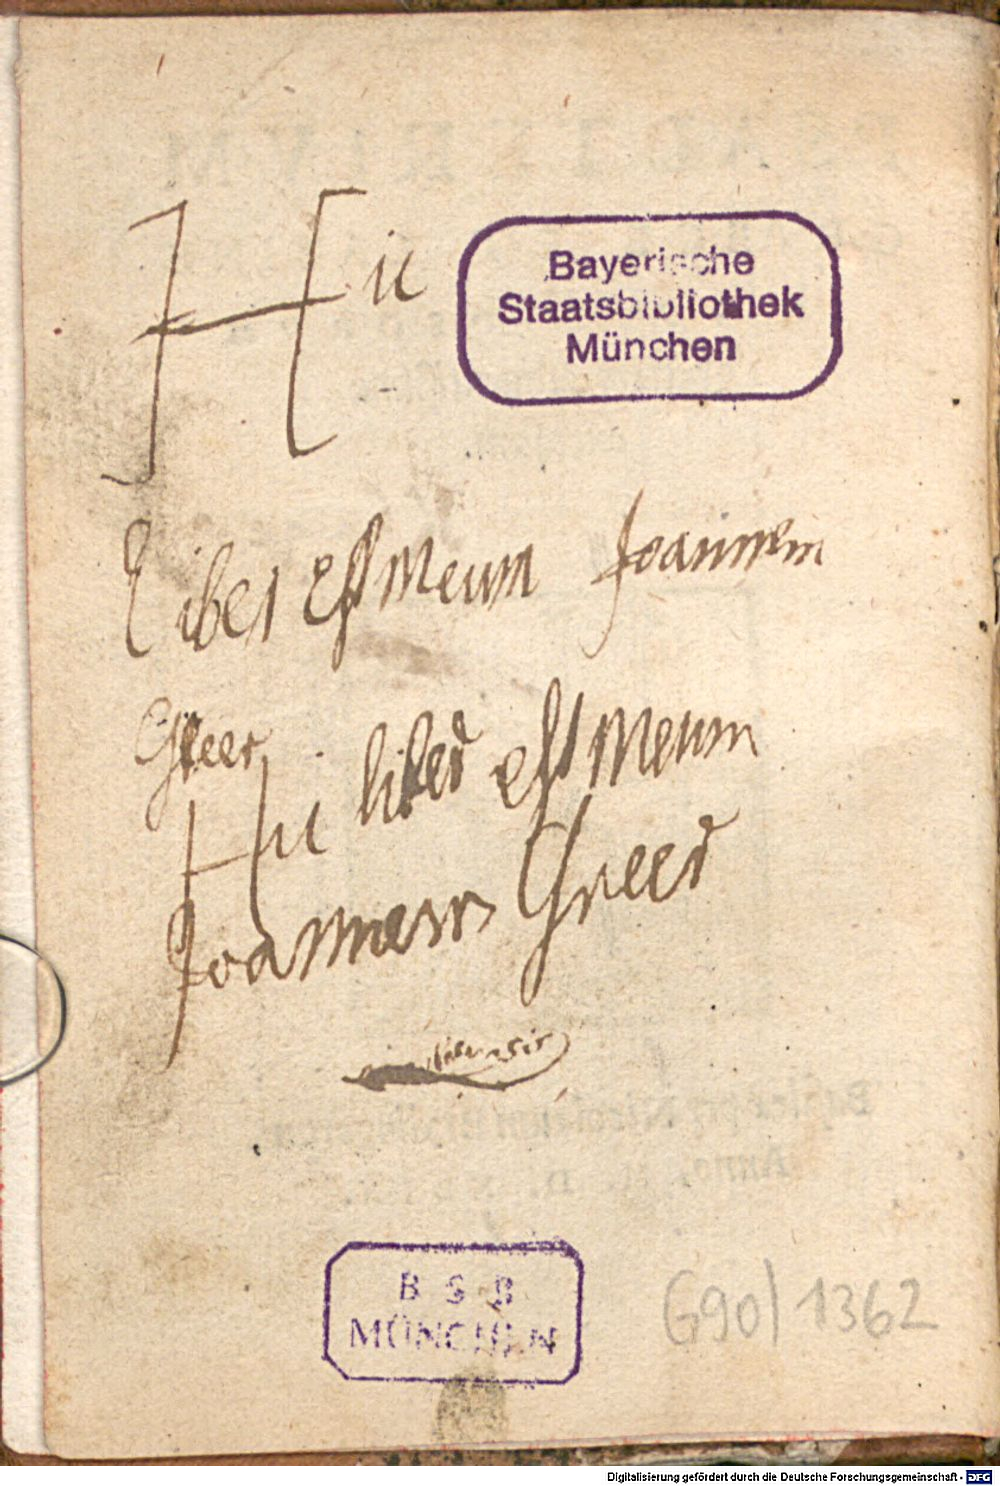 Hic
Bayerische
Staatsbibliothek
München
Liber est meum Joannem
Greer
Hic liber est meum
Joannem Greer
B S B
MÜNCHEN
G90/1362
Digitalisierung gefördert durch die Deutsche Forschungsgemeinschaft - DFG